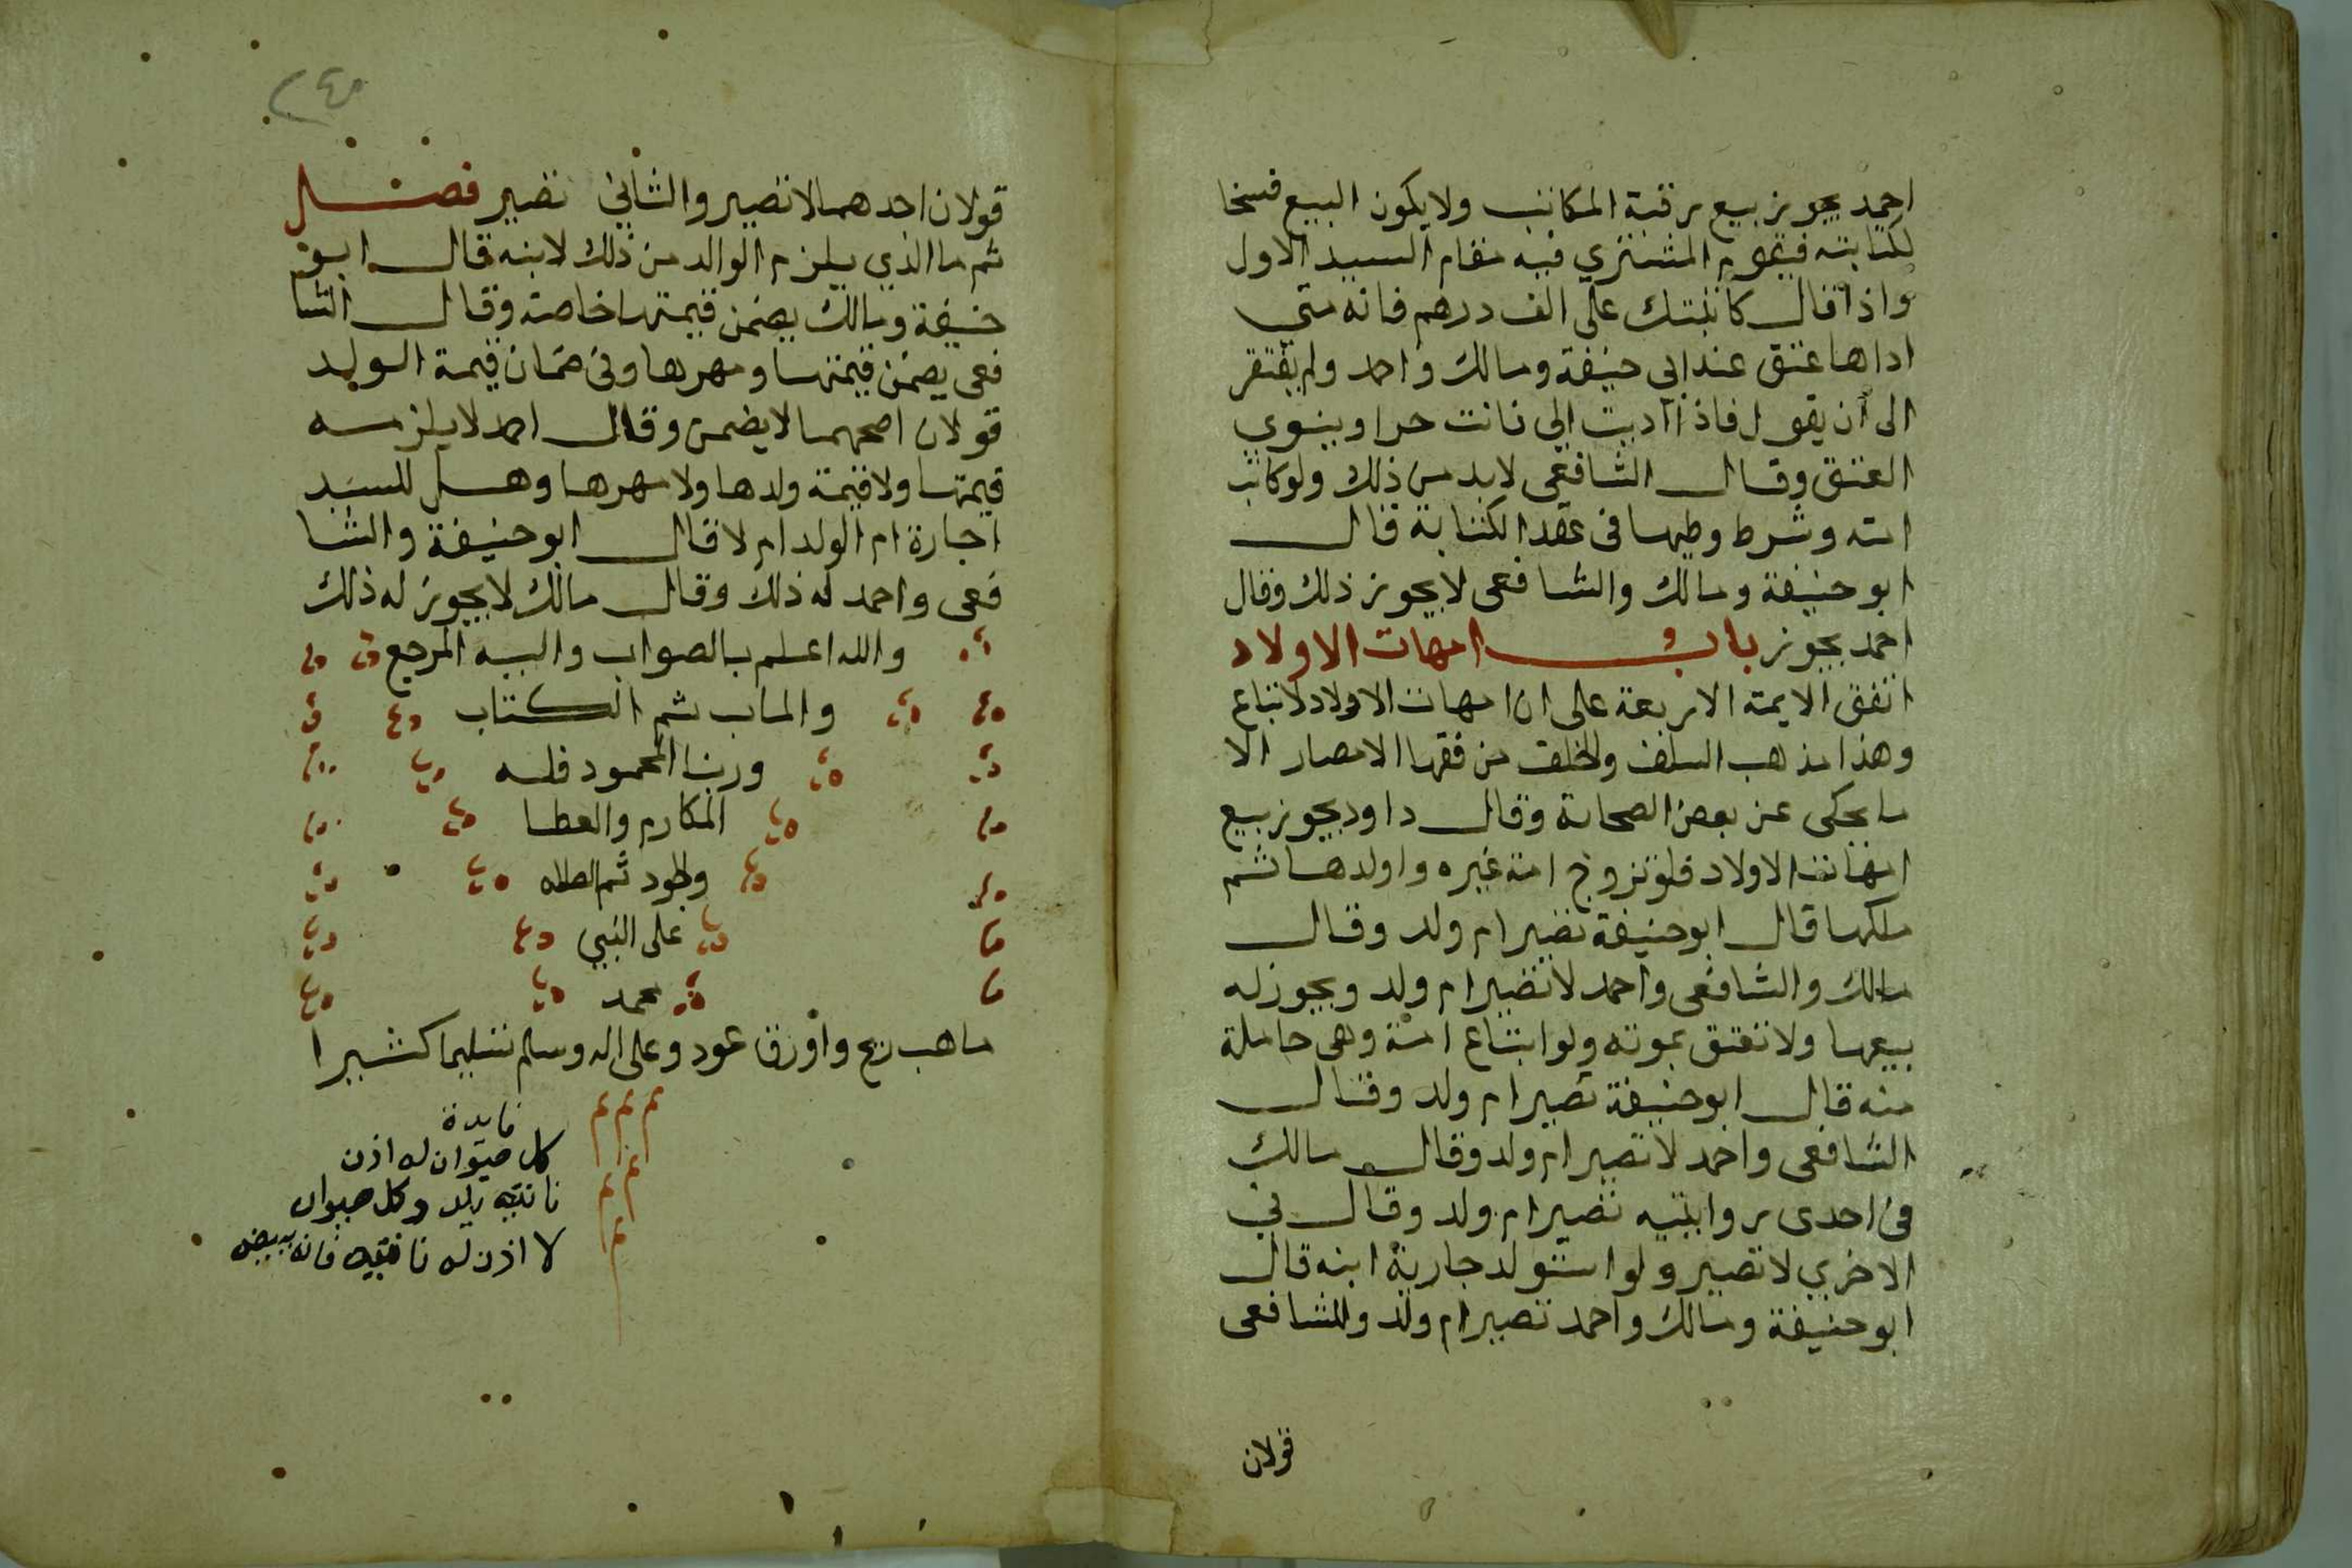 احمد يجوز بيع رقبة المكاتب ولا يكون البيع فسخا
لكتابته فيقوم المشتري فيه مقام السيد الاول
واذا قال كاتبتك على الف درهم فانه متي
اداها عتق عند ابي حنيفة ومالك واحمد ولم يفتقر
الى ان يقول فاذا اديت الي فانت حر او ينوي
العتق وقال الشافعي لابد من ذلك ولو كاتب
امته وشرط وطيها في عقد الكتابة قال
ابو حنيفة ومالك والشافعى لا يجوز ذلك وقال
احمد يجوز باب امهات الاولاد
اتفق الايمة الاربعة على ان امهات الاولاد لا تباع
وهذا مذهب السلف والخلف من فقها الامصار الا
ما يحكى عن بعض الصحابة وقال داود يجوز بيع
امهات الاولاد فلو تزوج امة غيره واولدها ثم
ملكها قال ابو حنيفة تصير ام ولد وقال
مالك والشافعى واحمد لا تصير ام ولد ويجوز له
بيعها ولا تعتق بموته ولو ابتاع امة وهى حاملة
منه قال ابو حنيفة تصير ام ولد وقال
الشافعى واحمد لا تصير ام ولد وقال مالك
فى احدى روايتيه تصير ام ولد وقال في
الاخري لا تصير ولو استولد جارية ابنه قال
ابو حنيفة ومالك واحمد تصير ام ولد وللشافعى
قولان
٢٤٥
قولان احدهما لا تصير والثاني تصير فصل
ثم ما الذي يلزم الوالد من ذلك لابنه قال ابو
حنيفة ومالك يضمن قيمتها خاصة وقال الشا
فعى يضمن قيمتها ومهرها وفى ضمان قيمة الولد
قولان اصحهما لا يضمن وقال احمد لا يلزمه
قيمتها ولا قيمة ولدها ولا مهرها وهل للسيد
اجارة ام الولد ام لا قال ابو حنيفة والشا
فعى واحمد له ذلك وقال مالك لا يجوز له ذلك
والله اعلم بالصواب واليه المرجع
والماب تم الكتاب
وربنا المحمود فله
المكارم والعطا
والجود ثم الصلاه
على النبي
محمد
ما هب ريح واورق عود وعلى اله وسلم تسليما كثيرا
فايدة
كل حيوان له اذن
ناتيه يلد وكل حيوان
لا اذن له ناتيه فانه يبيض